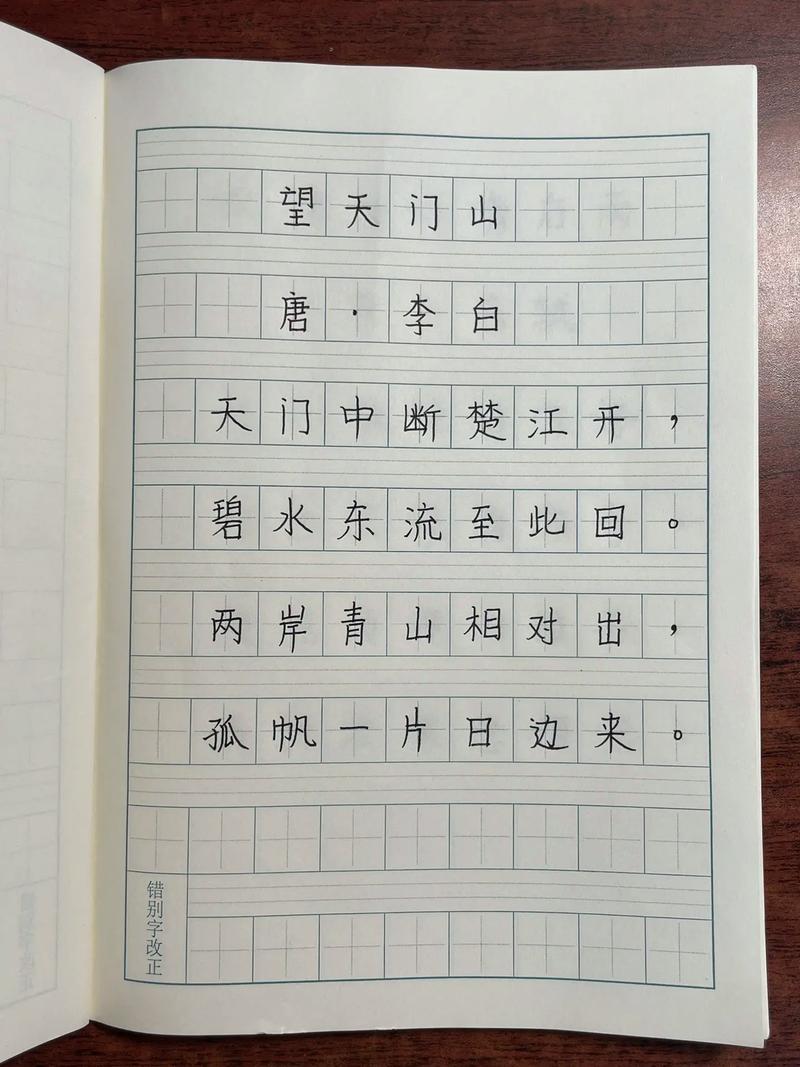 望天门山
唐·李白
天门中断楚江开，
碧水东流至此回。
两岸青山相对出，
孤帆一片日边来。
错别字改正